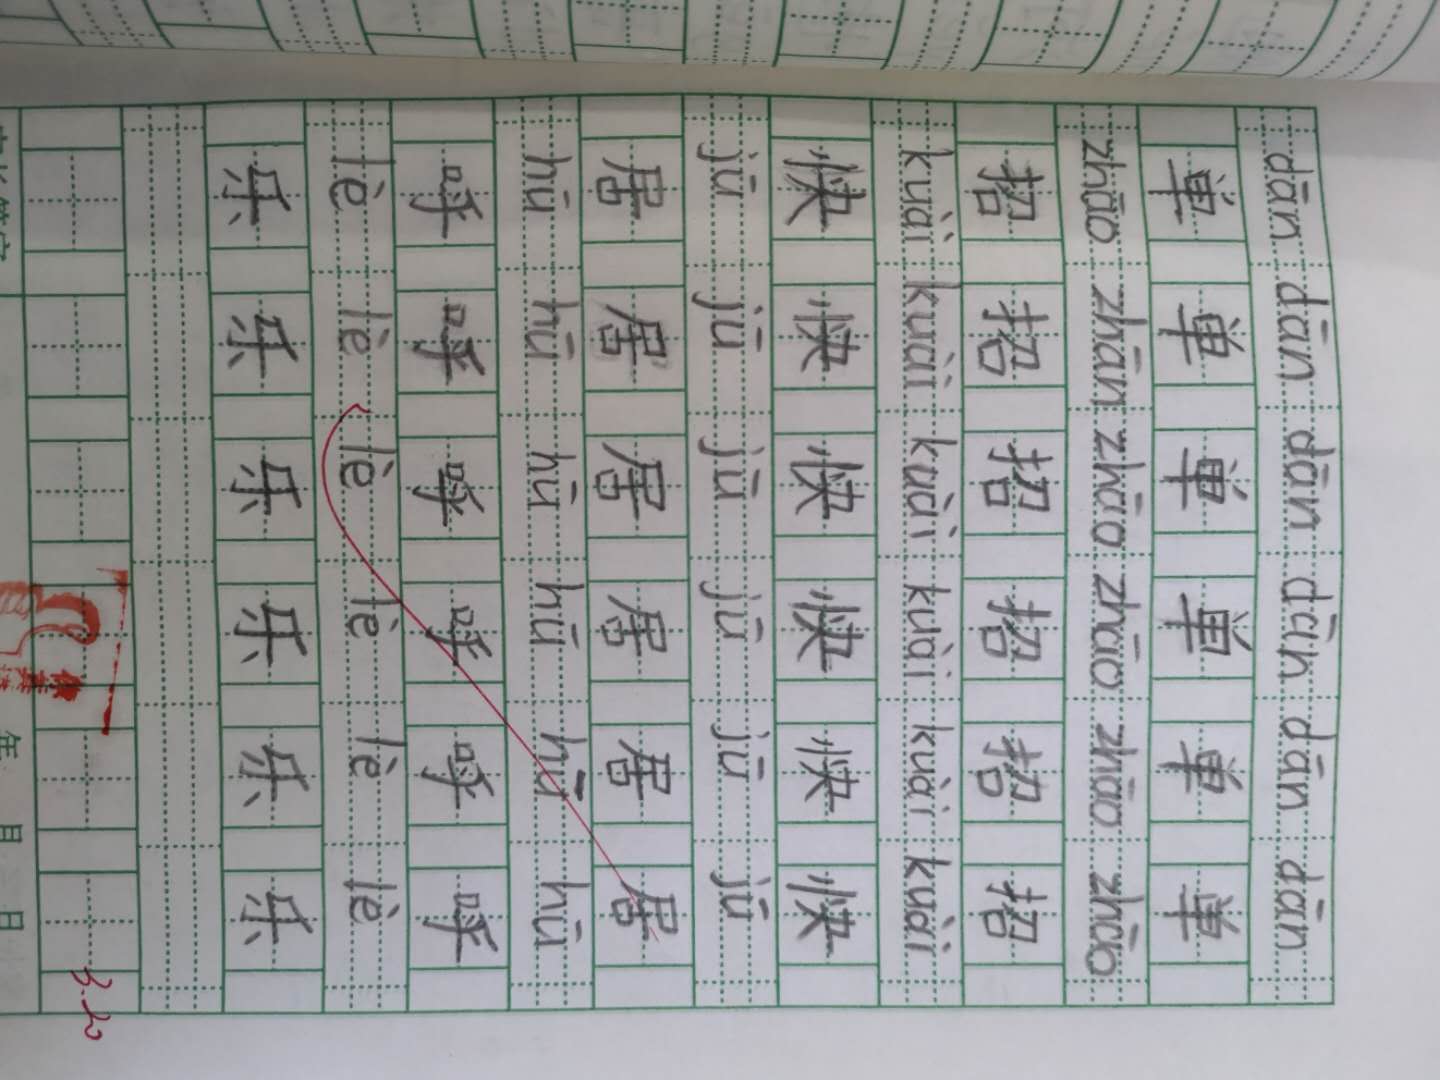 dān dān dān dān dān dān
单 单 单 单 单 单
zhāo zhān zhāo zhāo zhāo zhāo
招 招 招 招 招 招
kuài kuài kuài kuài kuài kuài
快 快 快 快 快 快
jū jū jū jū jū jū
居 居 居 居 居 居
hū hū hū hū hū hū
呼 呼 呼 呼 呼 呼
lè lè lè lè lè lè
乐 乐 乐 乐 乐 乐
年 月 日